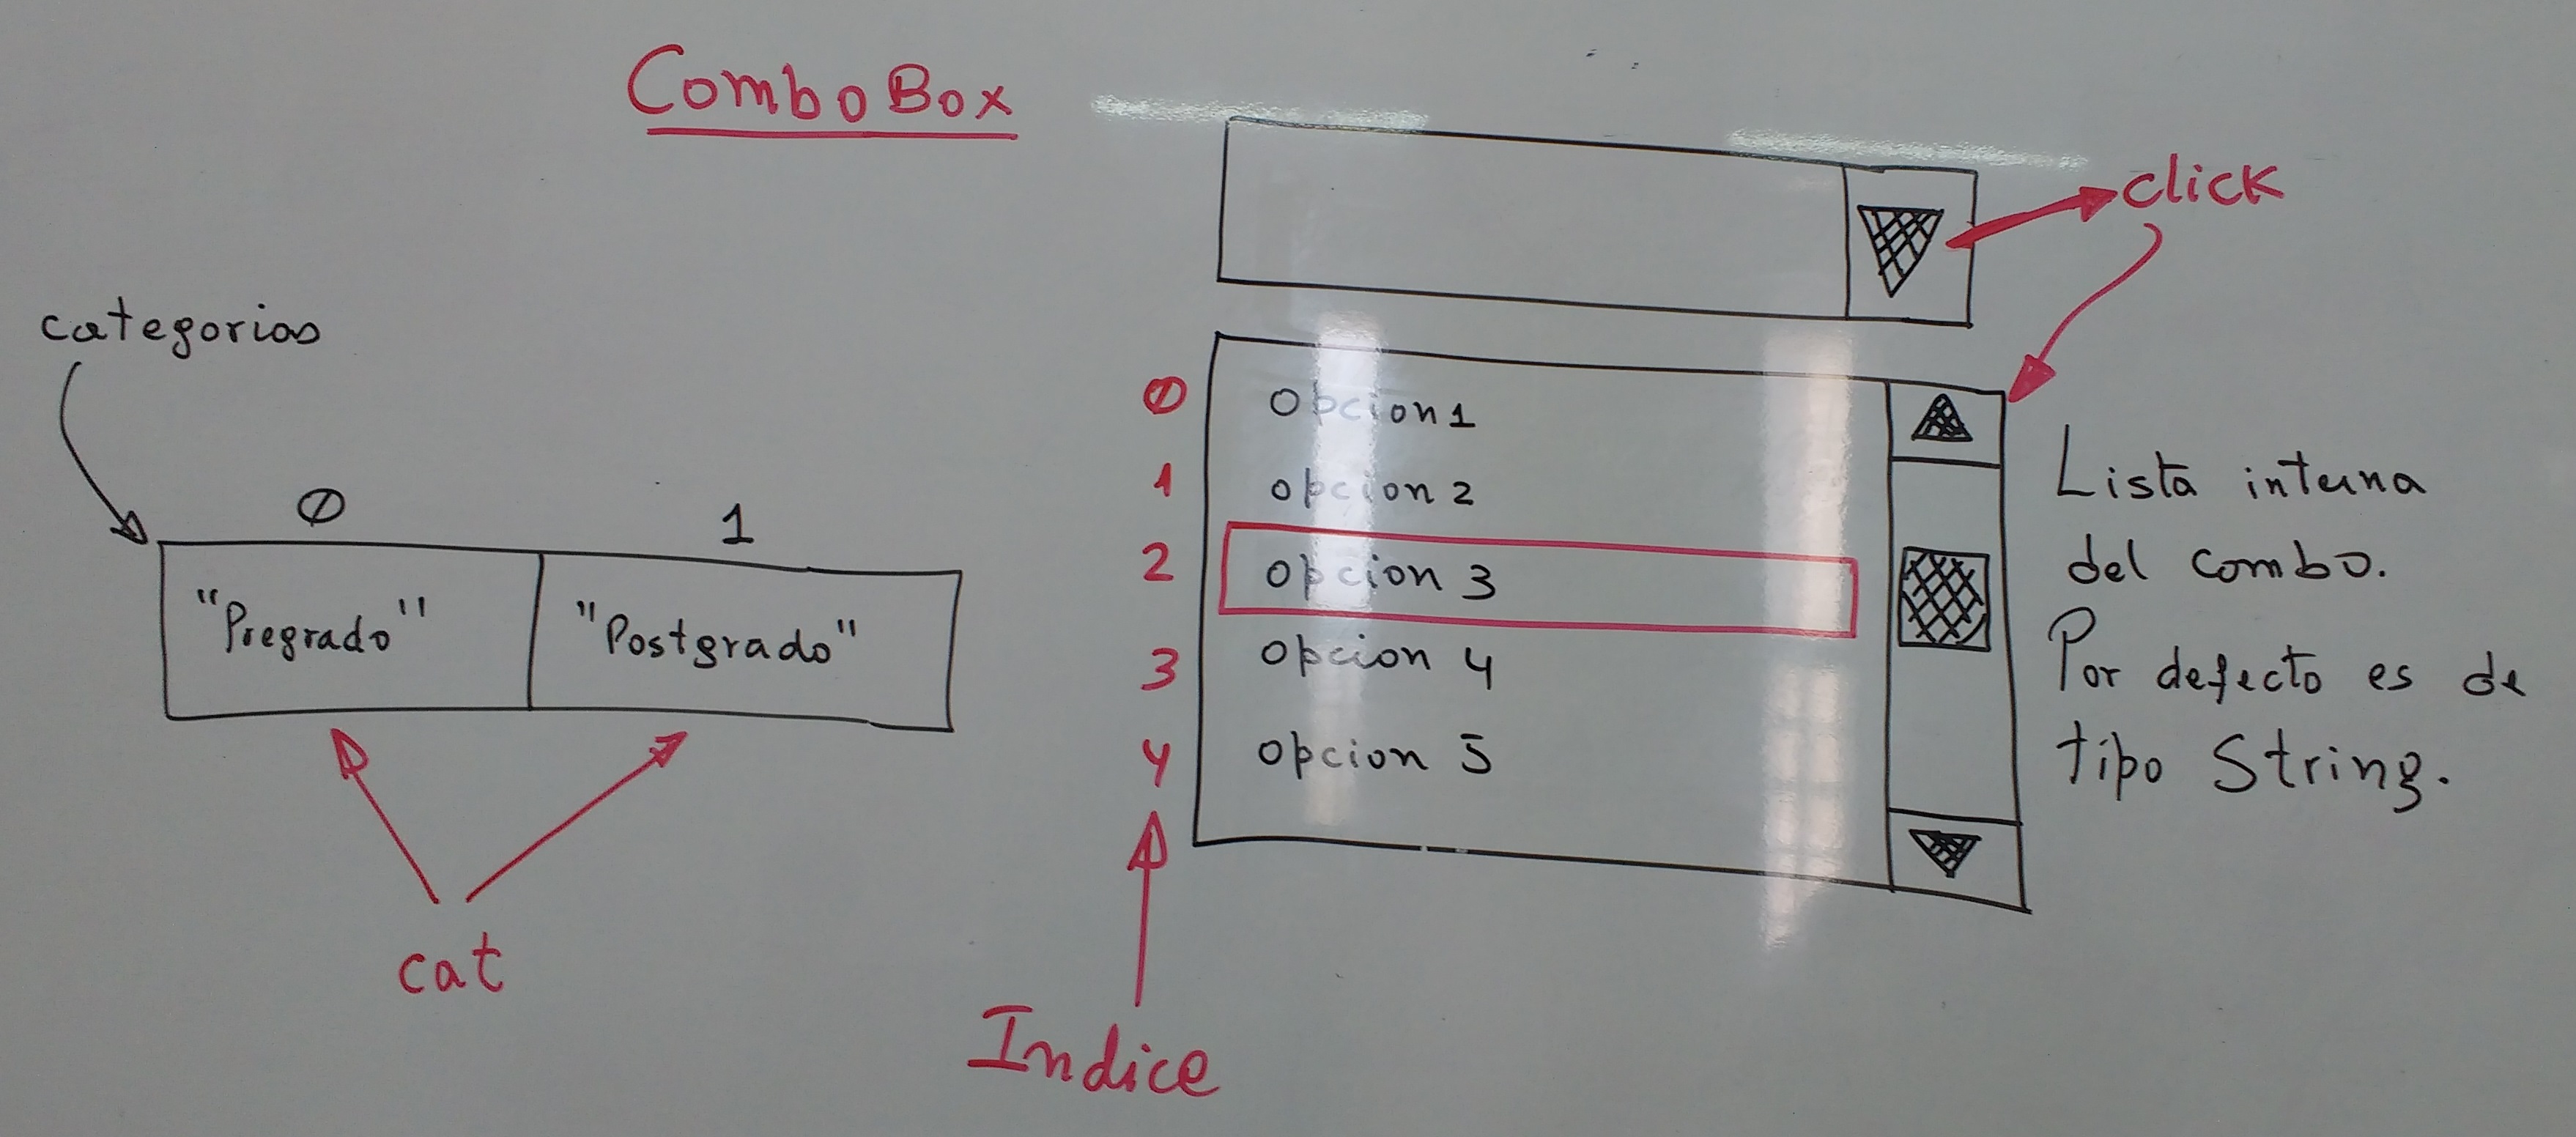 ComboBox
click
categorias
0 1
"Pregrado" "Postgrado"
cat
0 Opcion1
1 opcion 2
2 opcion 3
3 opcion 4
4 opcion 5
Indice
Lista interna
del combo.
Por defecto es de
tipo String.